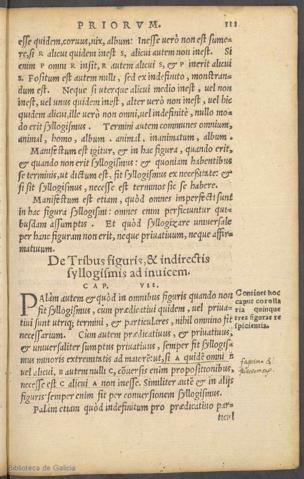 PRIORVM. 111
esse quidem, coruus, nix, album: Inesse verò non est sume-
re, si R alicui quidem inest S, alicui autem non inest. Si
enim P omni R insit, R autem alicui S, & P inerit alicui
S. Positum est autem nulli, sed ex indefinito, monstran-
dum est. Neque si uterque alicui medio inest, vel non
inest, vel unus quidem inest, alter verò non inest, vel hic
quidem alicui, ille verò non omni, vel indefinitè, nullo mo-
do erit syllogismus. Termini autem communes omnium,
animal, homo, album - animal, inanimatum, album.
Manifestum est igitur, & in hac figura, quando erit,
& quando non erit syllogismus: & quoniam habentibus
se terminis, ut dictum est, fit syllogismus ex necessitate: &
si sit syllogismus, necesse est terminos sic se habere.
Manifestum est etiam, quòd omnes imperfecti sunt
in hac figura syllogismi: omnes enim perficiuntur qui-
busdam assumptis. Et quòd syllogizare universale
per hanc figuram non erit, neque priuatiuum, neque affir-
matiuum.
De Tribus figuris, & indirectis
syllogismis ad inuicem.
CAP. VII.
PAlàm autem & quòd in omnibus figuris quando non
fit syllogismus, cum prædicatiui quidem, vel priua-
tiui sunt utriq; termini, & particulares, nihil omnino fit
necessarium. Cum autem prædicatiuus, & priuatiuus,
& uniuersaliter sumptus priuatiuus, semper fit syllogis-
mus minoris extremitatis ad maiorem: ut, si A quidē omni B
vel alicui, B autem nulli C, cōuersis enim propositionibus,
necesse est C alicui A non inesse. Similiter autē & in alijs
figuris: semper enim fit per conuersionem syllogismus.
Palàm etiam quòd indefinitum pro prædicatiuo par-
ticul
Continet hoc
caput corolla
ria quinque
tres figuras re
spicientia.
Biblioteca de Galicia